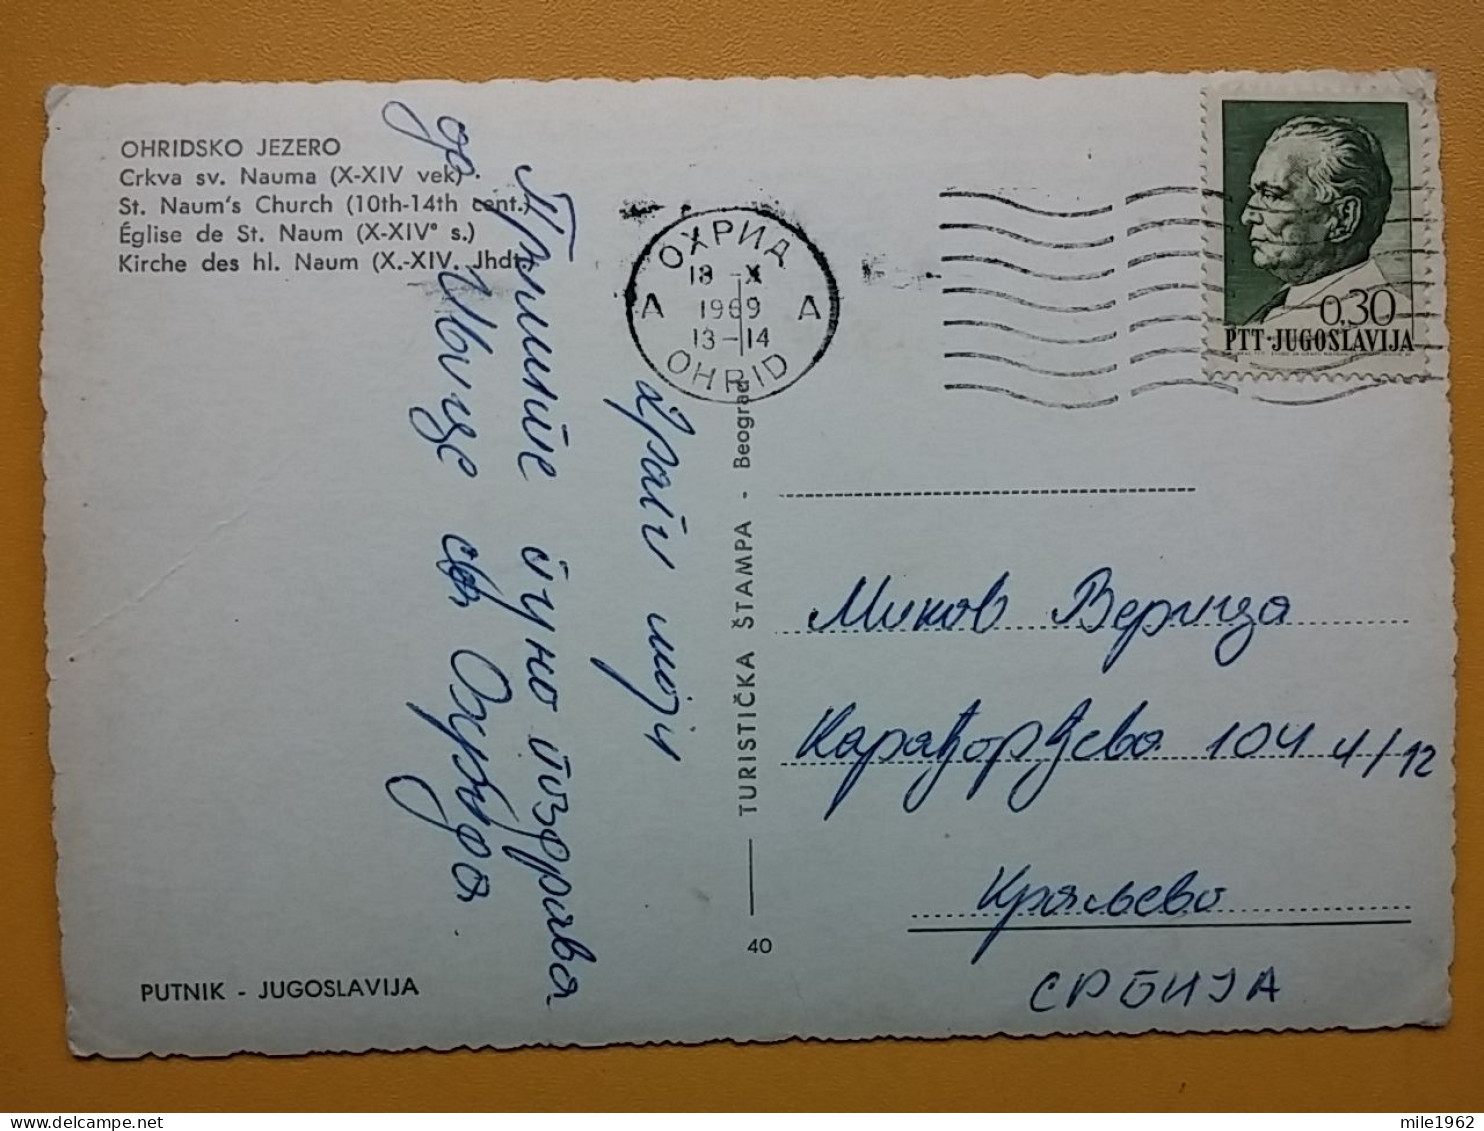 OHRIDSKO JEZERO
Crkva sv. Nauma (X-XIV vek)
St. Naum's Church (10th-14th cent.)
Église de St. Naum (X-XIVᵉ s.)
Kirche des hl. Naum (X.-XIV. Jhdt.)
ОХРИД
18 -X
1969
13-14
A A
OHRID
0,30
PTT-JUGOSLAVIJA
Драги моји
Примите пуно поздрава
од Ивице са Охрида
TURISTIČKA ŠTAMPA - Beograd
40
Миков Верица
Карађорђева 104 4/12
Краљево
СРБИЈА
PUTNIK - JUGOSLAVIJA
mile1962